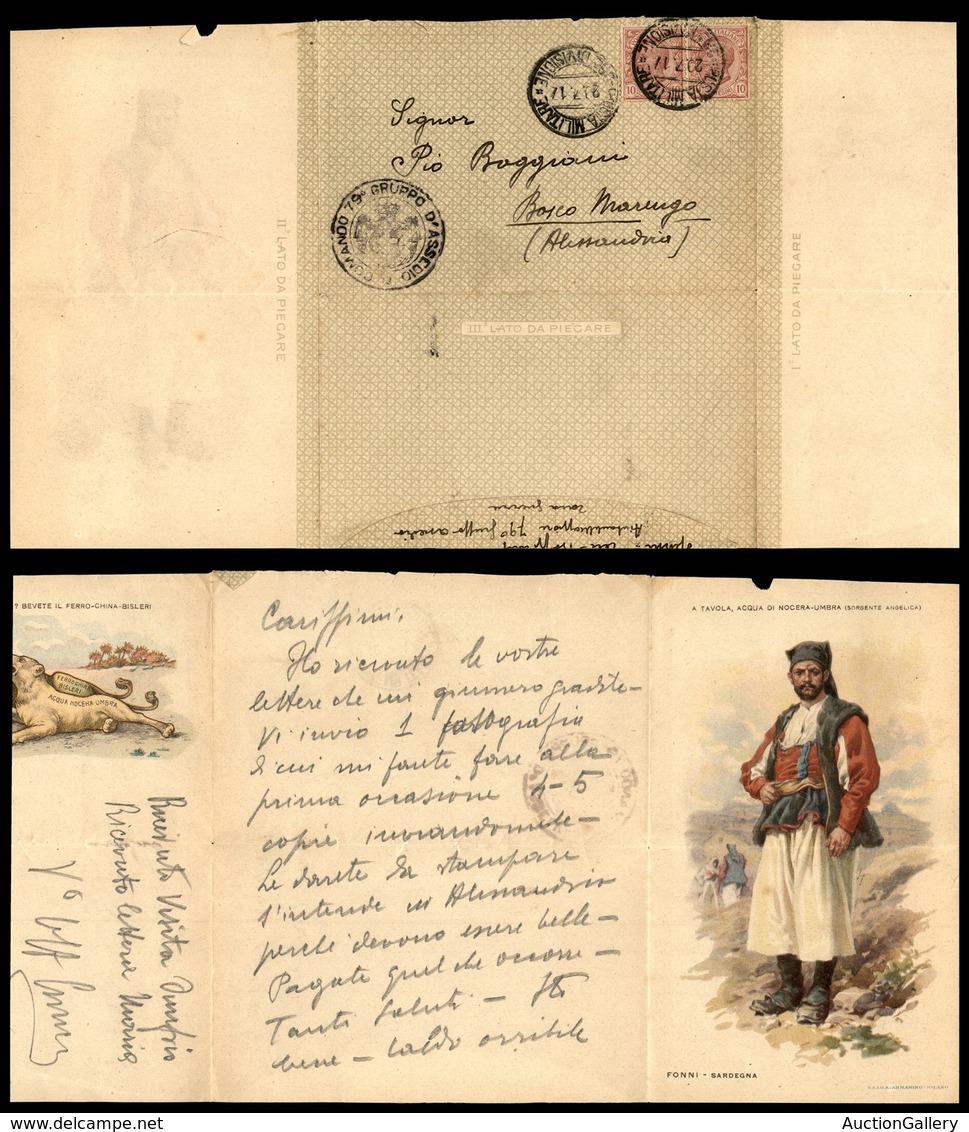 POSTA MILITARE
DIVISIONE
POSTA MILITARE
DIVISIONE
10
10
Signor
Pio Boggiani
Bosco Marengo
(Alessandria)
COMANDO 79º GRUPPO D'ASSEDIO
IIº LATO DA PIEGARE
IIIº LATO DA PIEGARE
Iº LATO DA PIEGARE
79º gruppo
zona guerra
? BEVETE IL FERRO-CHINA-BISLERI
FERRO CHINA
BISLERI
ACQUA NOCERA UMBRA
Ricevuto Visita
Ricevuto lettera
Carissimi,
Ho ricevuto le vostre
lettere che mi giunsero gradite –
Vi invio 1 fotografia
di cui mi farete fare alla
prima occasione 4-5
copie inviandomele –
Le darete da stampare
s'intende in Alessandria
perché devono essere belle –
Pagate quel che occorre –
Tanti saluti – Sto
bene – Caldo orribile
A TAVOLA, ACQUA DI NOCERA-UMBRA (SORGENTE ANGELICA)
FONNI - SARDEGNA
AuctionGallery
delcampe.net